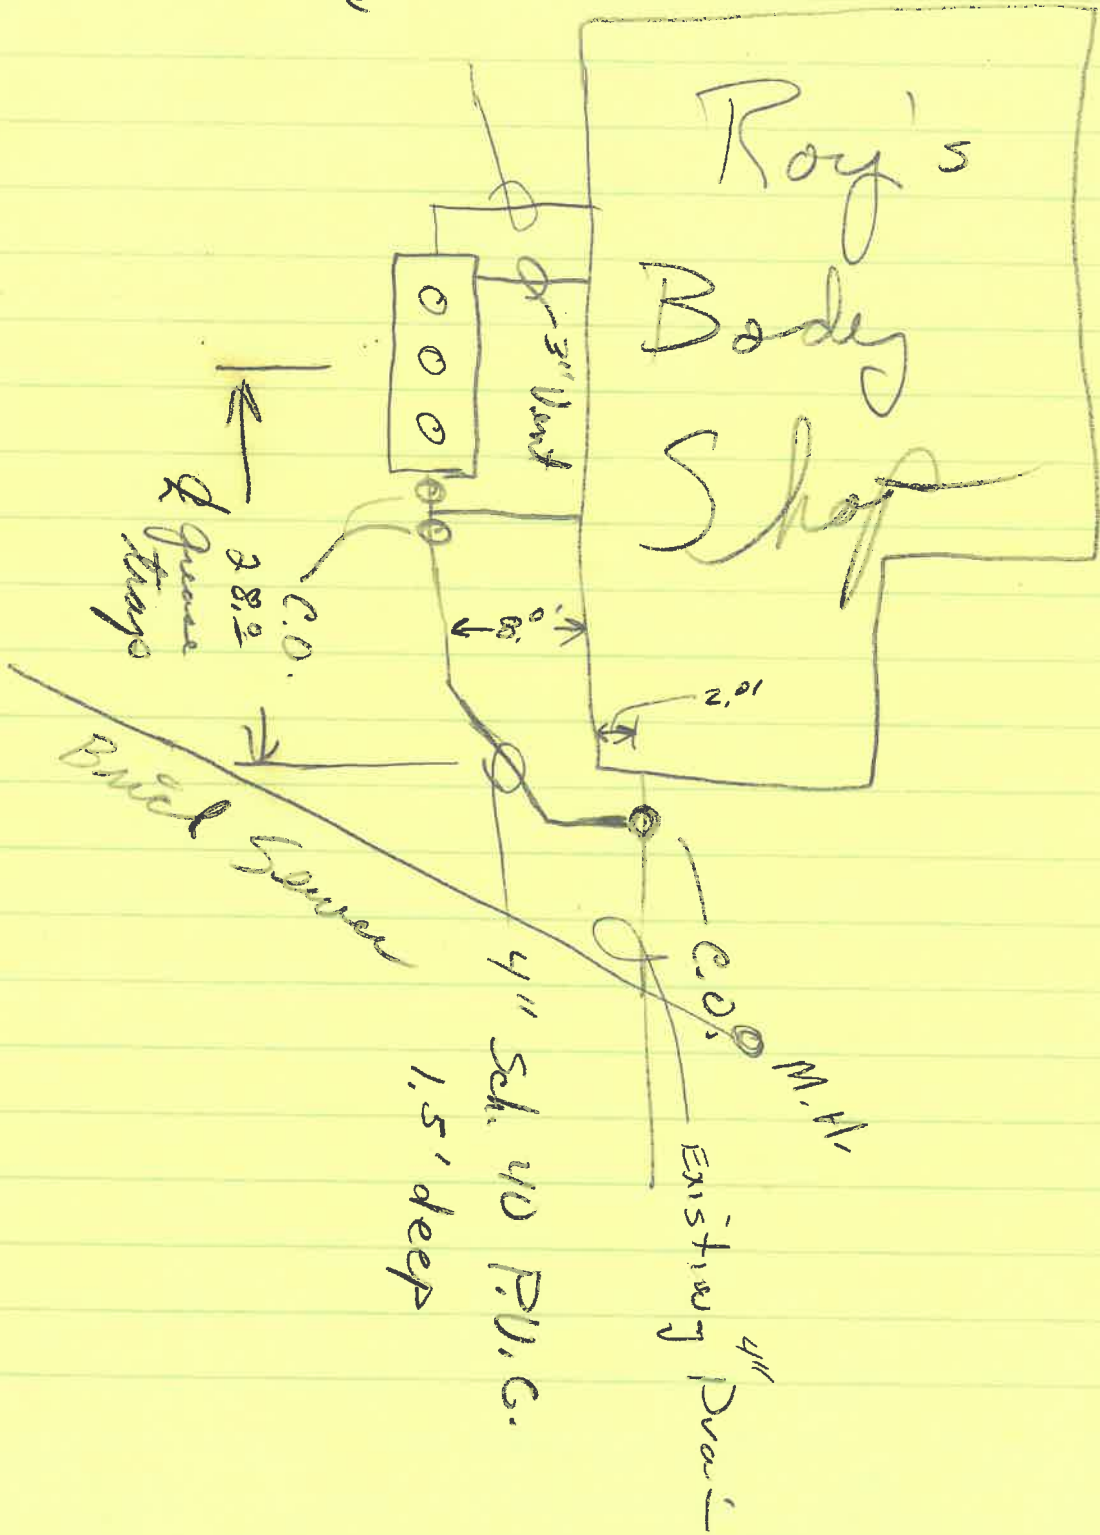 Roy's
Body
Shop
3" Vent
8'0"
2'0"
C.O.
28'0"
℄ grease
traps
Brick Sewer
C.O.
M.H.
Existing 4" Drain
4" Sch. 40 P.V.C.
1.5' deep